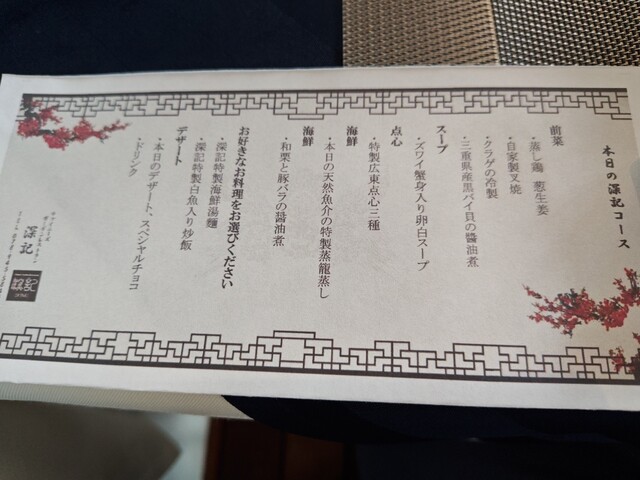 本日の深記コース
前菜
・蒸し鶏 葱生姜
・自家製叉焼
・クラゲの冷製
・三重県産黒バイ貝の醬油煮
スープ
・ズワイ蟹身入り卵白スープ
点心
・特製広東点心三種
海鮮
・本日の天然魚介の特製蒸籠蒸し
海鮮
・和栗と豚バラの醤油煮
お好きなお料理をお選びください
・深記特製海鮮湯麺
・深記特製白魚入り炒飯
デザート
・本日のデザート、スペシャルチョコ
・ドリンク
深記